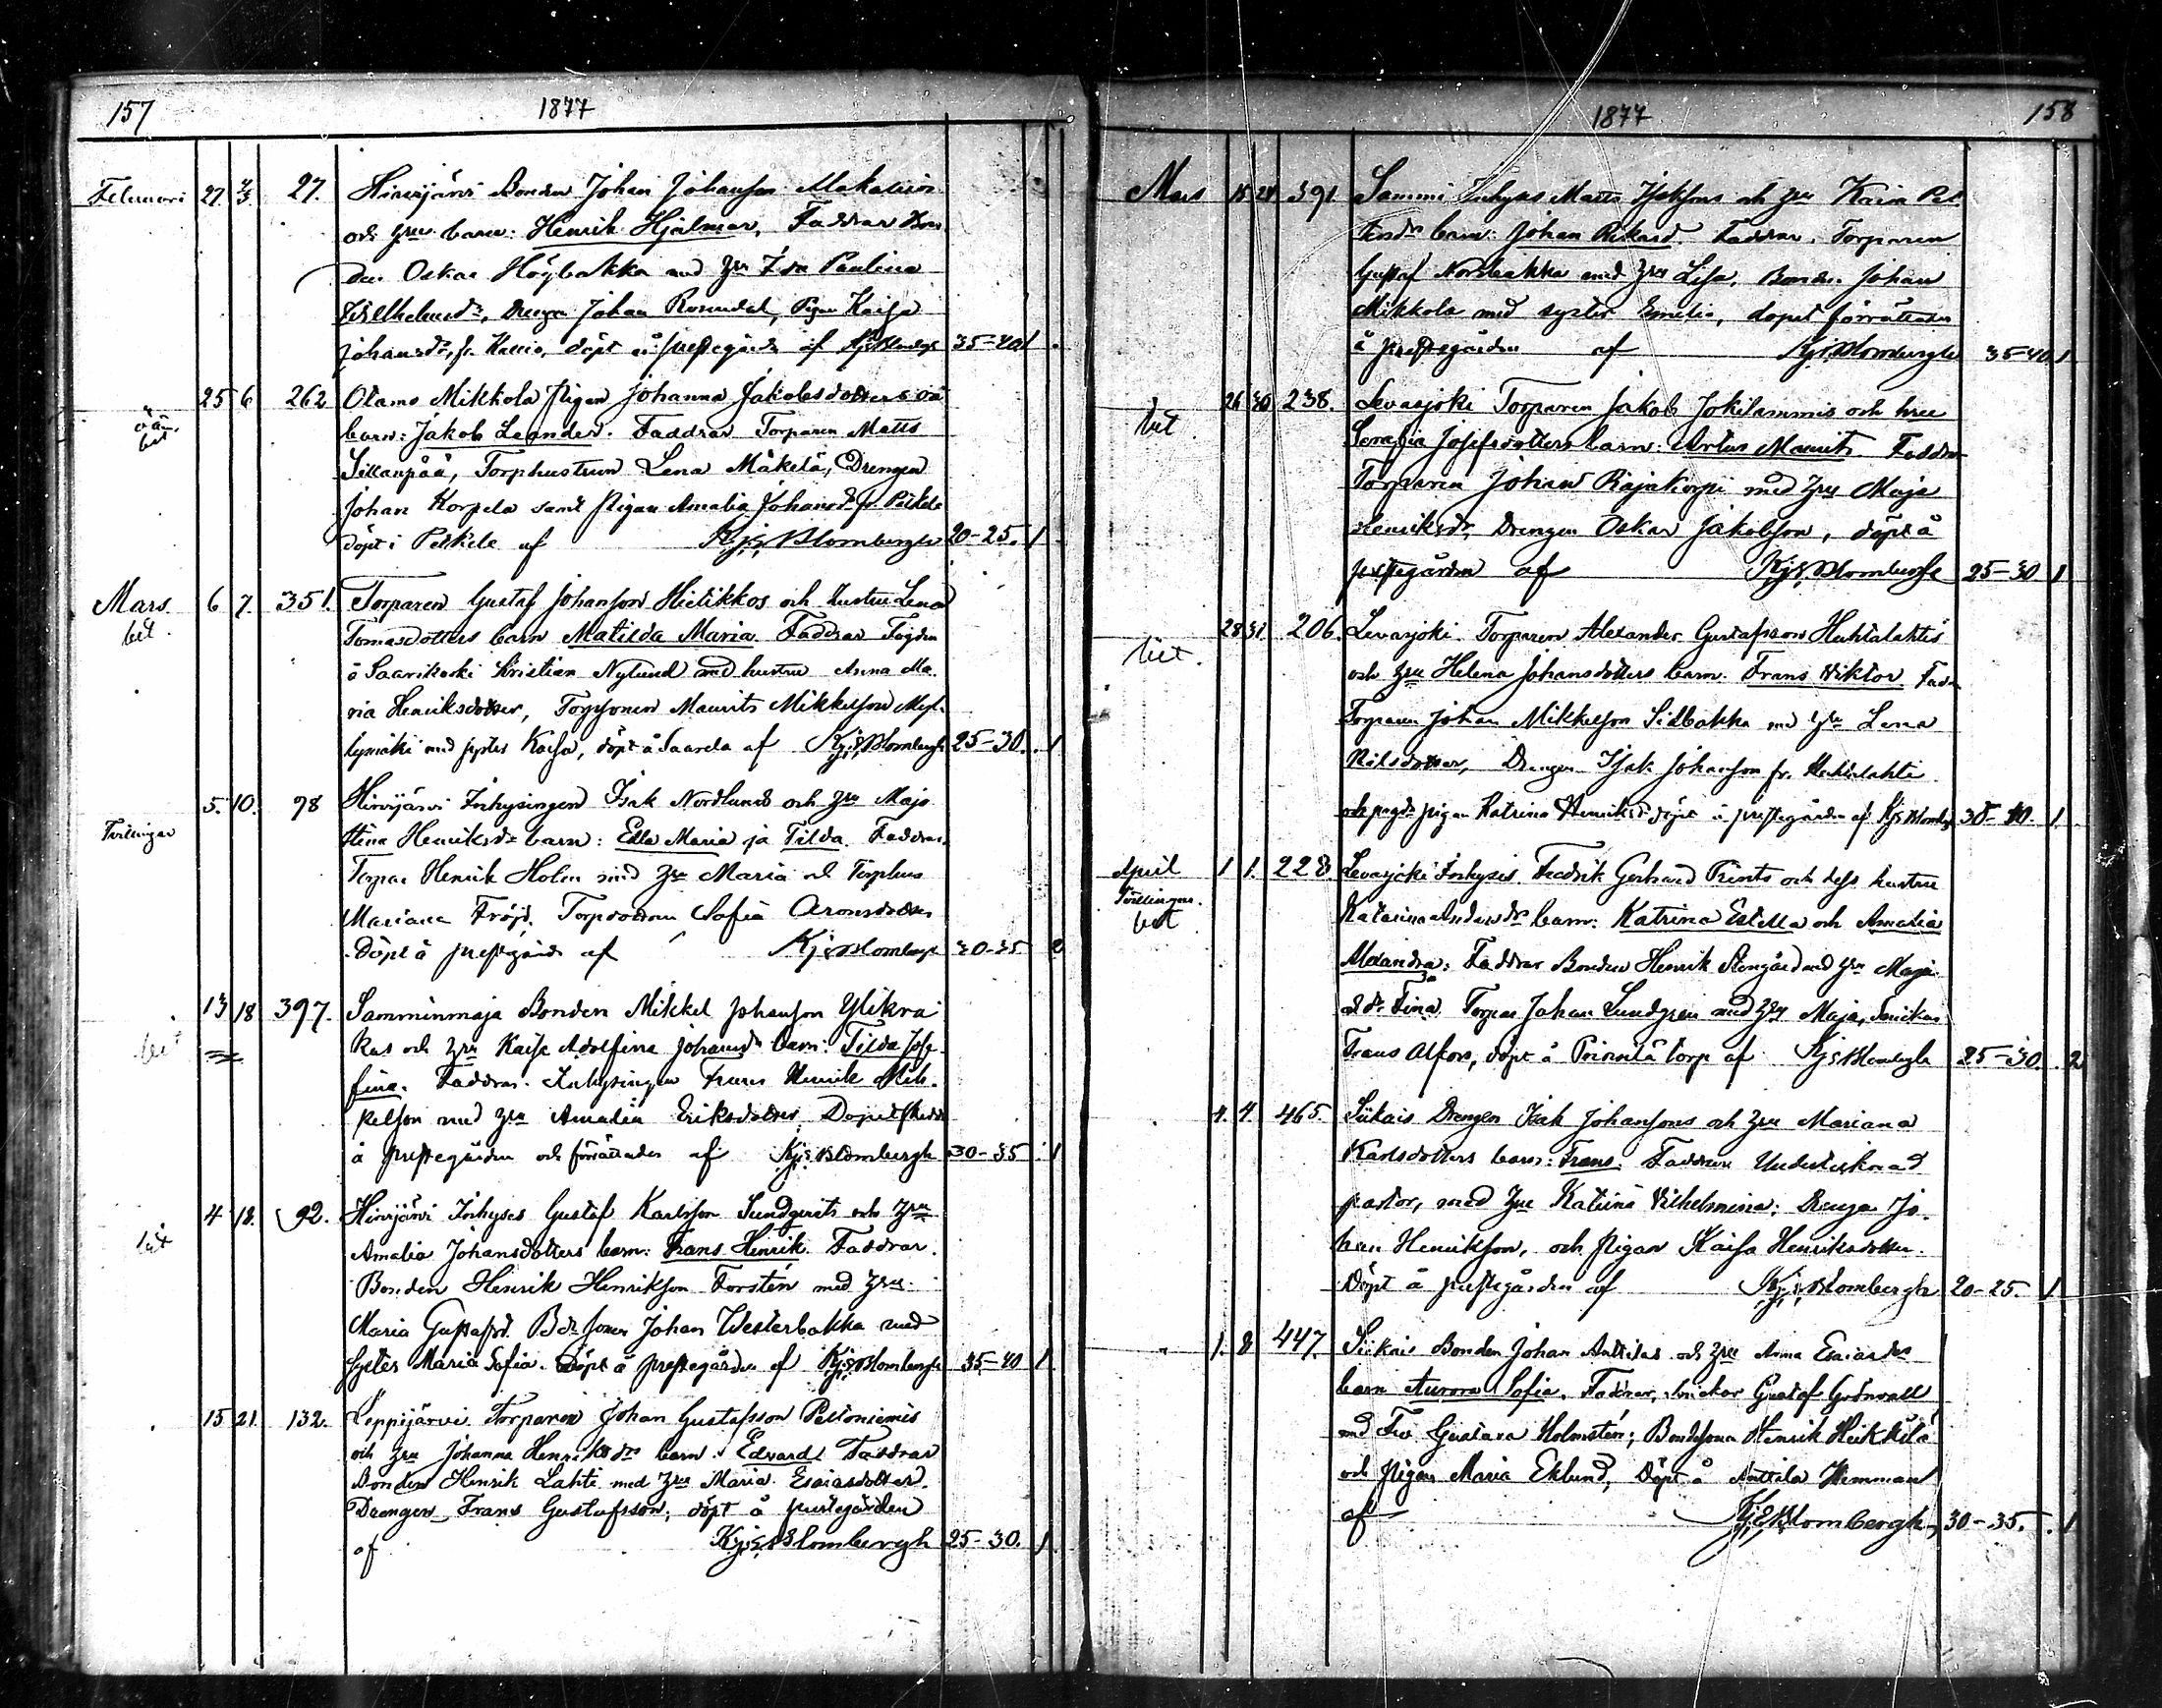 157
1877
Februari 27. 4/3. 27. Hirvijärvi Bonden Johan Johanson
och hru barn: Henrik Hjalmar, Faddrar Bon
den Oskar Högbakka med hru Ida Paulina
Wilhelmsdr, Drengen Johan Rosendal, Pigan Kaisa
Johansdr, fr. Kallio, döpt å prestegården af KjEBlombergh 35-40 1
25 6 262 Otamo Mikkola pigan Johanna Jakobsdotters oä
oäkta bet
barn: Jakob Leander. Faddrar Torparen Matts
Sillanpää, Torphustrun Lena Mäkelä, Drengen
Johan Korpela samt pigan Amalia Johansdr fr. Peikele
döpt i Peikele af KjEBlombergh 20-25. 1
Mars. 6 7. 351. Torparen Gustaf Johanson Hietikkos och hustru Lena
bet.
Tomasdotters barn Matilda Maria. Faddrar Fogden
å Saarikoski Kristian Nylund med hustru Anna Ma-
ria Henriksdotter, Torpsonen Maurits Mikkelson Myl-
lymäki med syster Kaisa, döpt å Saarela af KjEBlombergh 25-30. 1
5. 10. 98 Hirvijärvi Inhysingen Isak Nordlunds och hru Maja
Tvillingar
Stina Henriksdr barn: Edla Maria ja Tilda. Faddrar.
Torpar Henrik Holm med hru Maria och Torphus
Mariana Fröjd. Torpdottren Sofia Aronsdotter
Döpt å prestegården af KjEBlombergh 30-35 2
13 18 397. Samminmaja Bonden Mikkel Johanson Ylikra
bet
kas och hru Kaisa Adolfina Johansdr barn: Tilda Jose-
fina. Faddrar. Inhysingen Frans Henrik Mik-
kelson med hru Amalia Eriksdotter, Dopet skedde
å prestegården och förrättades af KjEBlombergh 30-35 1
4 18. 92. Hirvijärvi Inhyses Gustaf Karlsson Sundqvists och hru
bet
Amalia Johansdotters barn: Frans Henrik. Faddrar.
Bonden Henrik Henrikson Forstén med hru
Maria Gustafsd. Bdesonen Johan Westerbakka med
syster Maria Sofia. Döpt å prestegården af KjEBlombergh 35-40 1
15 21. 132. Leppijärvi Torparen Johan Gustafsson Peltoniemis
och hru Johanna Henriksdrs barn: Edvard. Faddrar
Bonden Henrik Lahti med hru Maria Esaiasdotter.
Drengen Frans Gustafsson; döpt å prestegården
af KjEBlombergh 25-30. 1
1877
158
Mars 15 24 391. Sammi Inhyses Matts Isaksons och hru Kaisa
barn: Johan Rikard. Faddrar. Torparen
Gustaf Norrbakka med hru Lisa, Bonden Johan
Mikkola med syster Emilia, dopet förrättades
å prestegården af KjEBlombergh 35-40. 1
26 30 238. Levasjoki Torparen Jakob Jokilammis och hru
bet
Serafia Josefsdotters barn: Artur Maurits. Faddrar
Torparen Johan Rajakorpi med hru Maja
Henriksdr, Drengen Oskar Jakobson, döpt å
prestegården af KjEBlombergh 25-30 1
28 31 206. Levasjoki. Torparen Alexander Gustafsson Huhtalahtis
bet.
och hru Helena Johansdotters barn. Frans Viktor. Fadr
Torparen Johan Mikkelson Sillbakka med hru Lena
Nilsdotter, Drengen Isak Johanson fr. Huhtalahti
och pigan Katrina Henriksdr döpt å prestegården af KjEBlombergh 1.
April 1 1. 228. Levasjoki Inhyses. Fredrik Gerhard Prints och dess hustru
Tvillingar.
bet
Katarina Andersdr barn: Katrina Estella och Amalia
Alexandra: Faddrar Bonden Henrik Stengård med hru Maja
och dr Fina. Torpar Johan Lundgren med hru Maja, Snickar
Frans Alfors, döpt å torp af KjEBlombergh 25-30. 2
4. 4. 465. Siikais Drengen Isak Johansons och hru Mariana
Karlsdotters barn: Frans. Faddrar Undertecknad
pastor, med hru Katrina Vilhelmina; Drengen Jo-
han Henrikson, och pigan Kaisa Henriksdotter.
Döpt å prestegården af KjEBlombergh 20-25. 1
1. 8 447. Siikais Bonden Johan Anttilas och hru Anna Esaiasdrs
barn Aurora Sofia. Faddrar, snickar Gustaf Grönvall
med Fru Gustava Holmstén; Bondesonen Henrik Heikkilä
och pigan Maria Eklund, Döpt å Anttila Hemman
af KjEBlombergh 30-35. 1